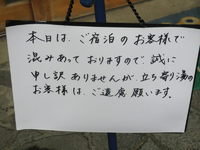 本日は、ご宿泊のお客様で
混みあっておりますので、誠に
申し訳ありませんが、立ち寄り湯の
お客様は、ご遠慮願います。